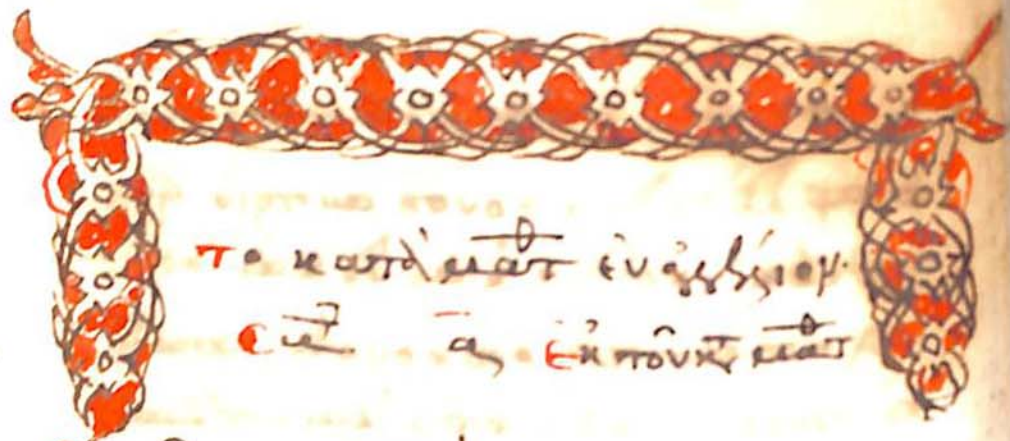 το κατὰ ματθ ἐυαγγέλιον·
ἐκ τοῦ κτ ματθ